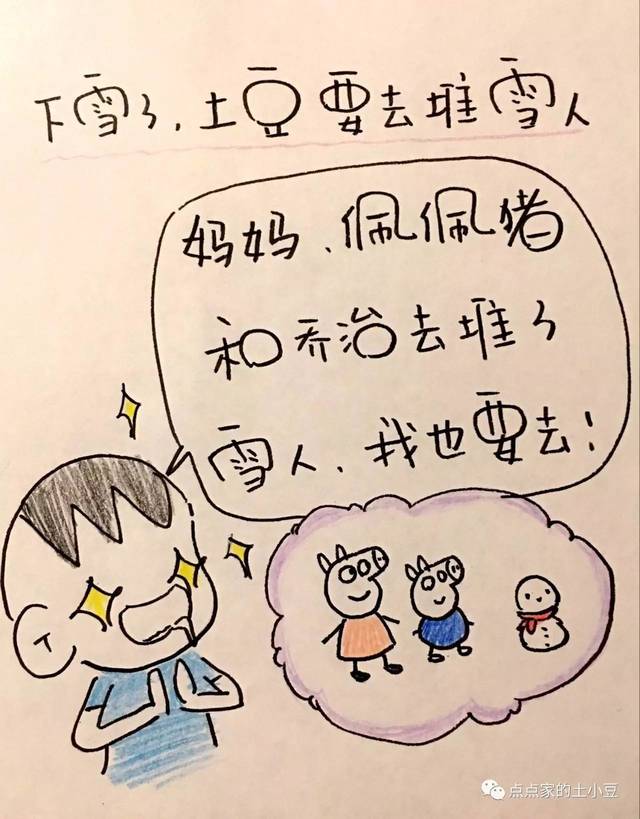 下雪了,土豆要去堆雪人
妈妈、佩佩猪
和乔治去堆了
雪人,我也要去!
点点家的土小豆